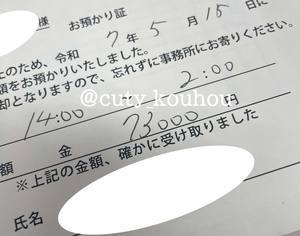 様 お預かり証
上のため、令和 7年 5月 15日に
額をお預かりいたしました。
却となりますので、忘れずに事務所にお寄りください。
2:00
@cuty_kouhou
14:00
額 金 73000円
※上記の金額、確かに受け取りました
氏名